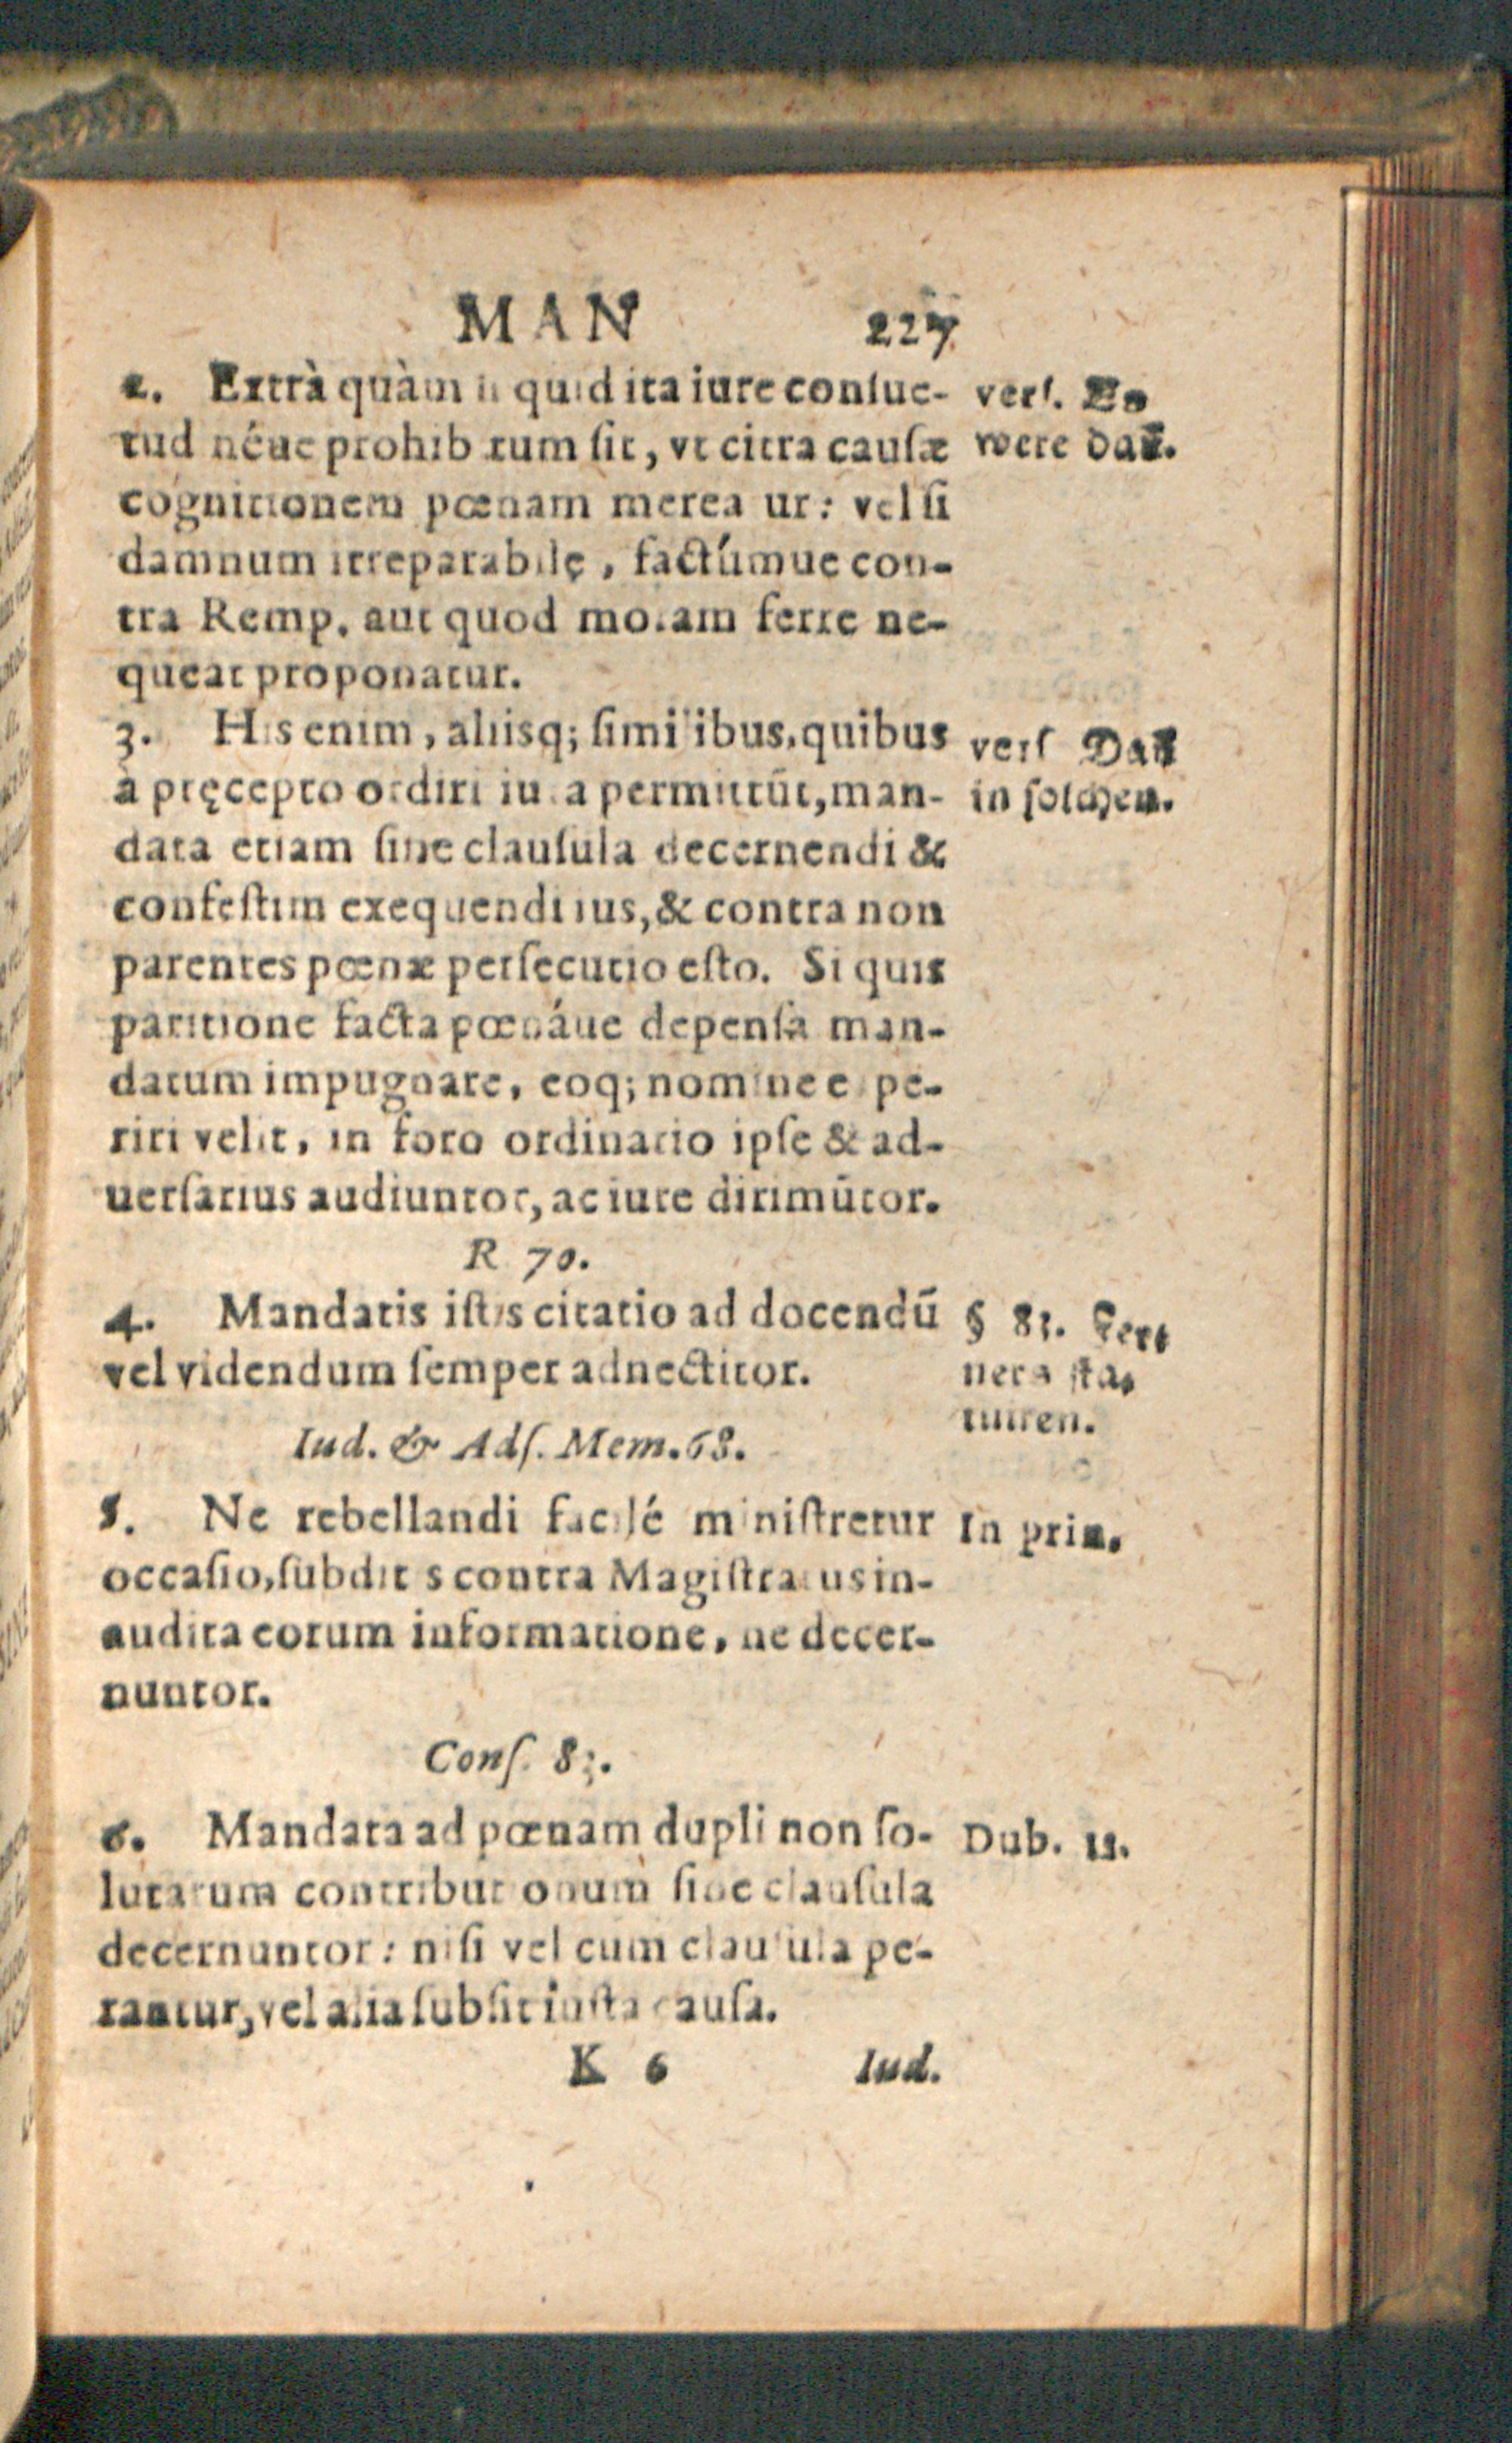 MAN 227
2. Extrà quàm si quid ita iure consue- vers. Es
tudinéue prohibitum sit, vt citra causæ were daß.
cognitionem pœnam mereatur: vel si
damnum irreparabilę, factúmue con-
tra Remp. aut quod moram ferre ne-
queat proponatur.
3. His enim, aliisq; similibus, quibus vers Daß
à pręcepto ordiri iura permittūt, man- in solchen.
data etiam sine clausula decernendi &
confestim exequendi ius, & contra non
parentes pœnæ persecutio esto. Si quis
paritione facta pœnáue depensa man-
datum impugnare, eoq; nomine expe-
riri velit, in foro ordinario ipse & ad-
uersarius audiuntor, ac iure dirimūtor.
R 70.
4. Mandatis istis citatio ad docendū § 83. Fer⸗
vel videndum semper adnectitor. nera sta⸗
tuiren.
Iud. & Ads. Mem. 68.
5. Ne rebellandi facilé ministretur In prin.
occasio, subditis contra Magistratus in-
audita eorum informatione, ne decer-
nuntor.
Cons. 83.
6. Mandata ad pœnam dupli non so- Dub. 11.
lutarum contributionum sine clausula
decernuntor: nisi vel cum clausula pe-
tantur, vel alia subsit iusta causa.
K 6 Iud.